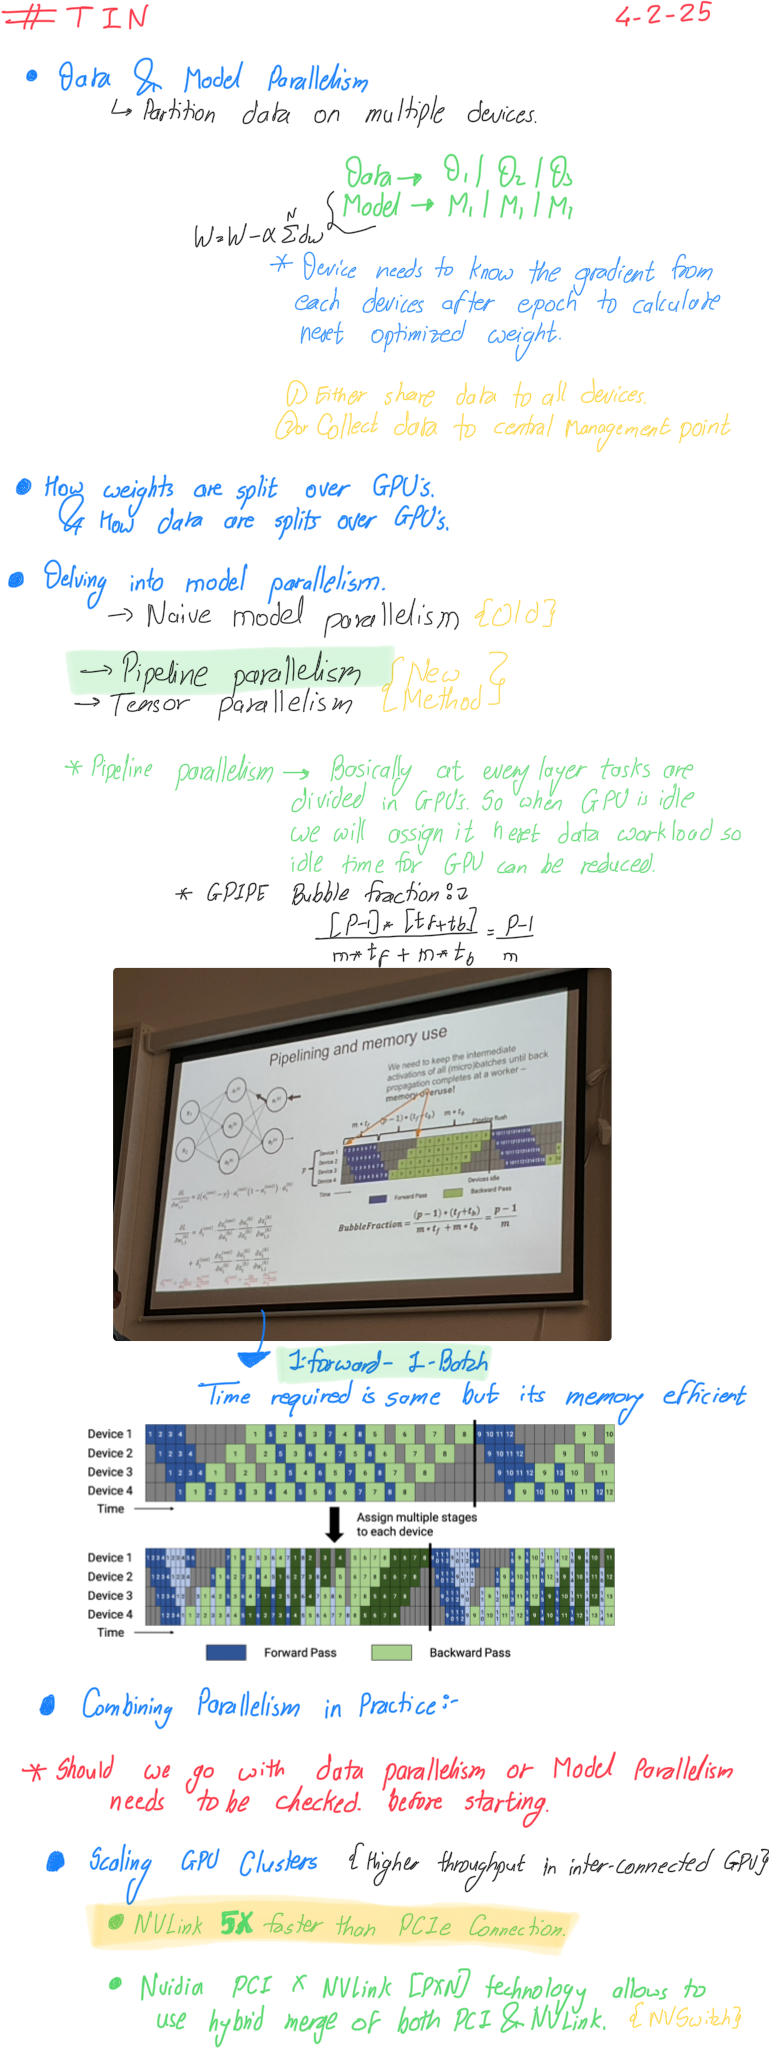 # TIN 4-2-25
• Data & Model Parallelism
↳ Partition data on multiple devices.
Data → D₁ | D₂ | D₃
Model → M₁ | M₁ | M₁
W=W-α Σᴺ dw
* Device needs to know the gradient from
each devices after epoch to calculate
next optimized weight.
① Either share data to all devices.
② or Collect data to central Management point
• How weights are split over GPU's.
& How data are splits over GPU's.
• Delving into model parallelism.
→ Naive model parallelism {Old}
→ Pipeline parallelism {New
→ Tensor parallelism {Method}
* Pipeline parallelism → Basically at every layer tasks are
divided in GPU's. So when GPU is idle
we will assign it next data workload so
idle time for GPU can be reduced.
* GPIPE Bubble fraction:=
[P-1]* [tf+tb] / m*tf + m*tb = P-1 / m
Pipelining and memory use
We need to keep the intermediate
activations of all (micro)batches until back
propagation completes at a worker –
memory overuse!
m * tf (p − 1) * (tf+tb) m * tb
Pipeline flush
Device 1
Device 2
p
Device 3
Device 4
Time
Devices idle
Forward Pass Backward Pass
BubbleFraction = (p − 1) * (tf+tb) / m * tf + m * tb = p − 1 / m
1-forward- 1-Batch
Time required is same but its memory efficient
Device 1
Device 2
Device 3
Device 4
Time
Assign multiple stages
to each device
Device 1
Device 2
Device 3
Device 4
Time
Forward Pass Backward Pass
• Combining Parallelism in Practice:-
* Should we go with data parallelism or Model Parallelism
needs to be checked. before starting.
• Scaling GPU Clusters {Higher throughput in inter-connected GPU}
• NVLink 5X faster than PCIe Connection.
• Nvidia PCI X NVLink [PXN] technology allows to
use hybrid merge of both PCI & NVLink. {NVSwitch}